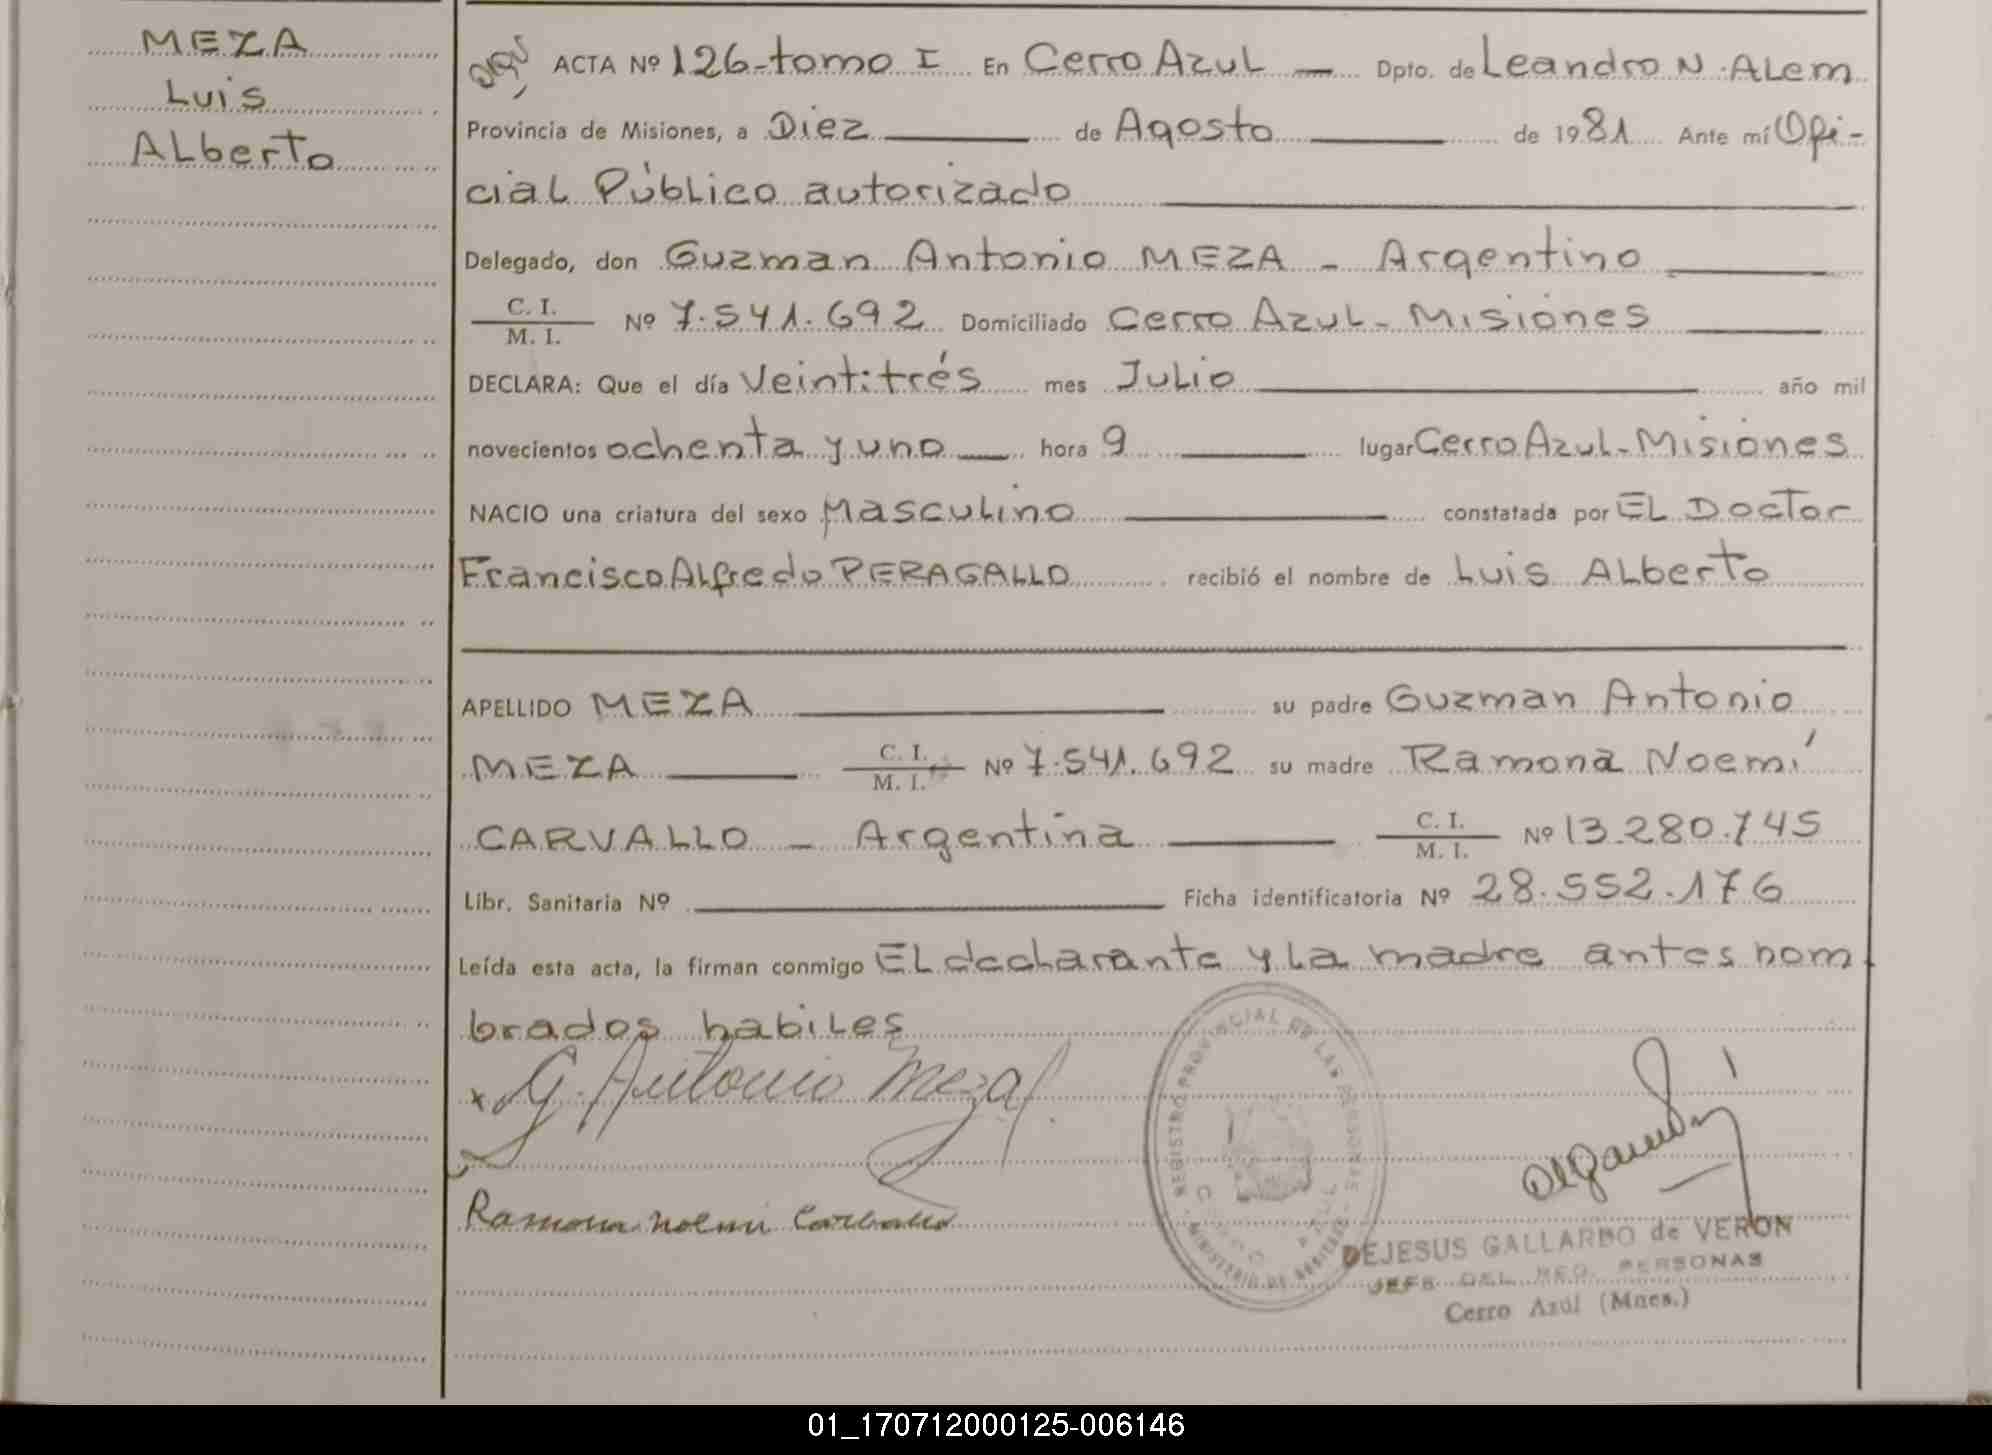 MEZA
Luis
Alberto
ACTA Nº 126-tomo I En Cerro Azul — Dpto. de Leandro N. Alem
Provincia de Misiones, a Diez de Agosto de 1981 Ante mí Ofi-
cial Público autorizado
Delegado, don Guzman Antonio MEZA - Argentino
C. I.
M. I.
Nº 7.541.692 Domiciliado Cerro Azul - Misiones
DECLARA: Que el día Veintitrés mes Julio año mil
novecientos ochenta y uno hora 9 lugar Cerro Azul - Misiones
NACIO una criatura del sexo Masculino constatada por El Doctor
Francisco Alfredo PERAGALLO recibió el nombre de Luis Alberto
APELLIDO MEZA su padre Guzman Antonio
MEZA C. I. M. I. Nº 7.541.692 su madre Ramona Noemí
CARVALLO - Argentina C. I. M. I. Nº 13.280.745
Libr. Sanitaria Nº Ficha identificatoria Nº 28.552.176
Leída esta acta, la firman conmigo El declarante y la madre antes nom
brados habiles
x G. Antonio Meza
Ramona Noemi Carballo
REGISTRO PROVINCIAL DE LAS PERSONAS
MINISTERIO DE GOBIERNO
CERRO AZUL
DEJESUS GALLARDO de VERON
JEFE DEL REG. PERSONAS
Cerro Azul (Mnes.)
01_170712000125-006146